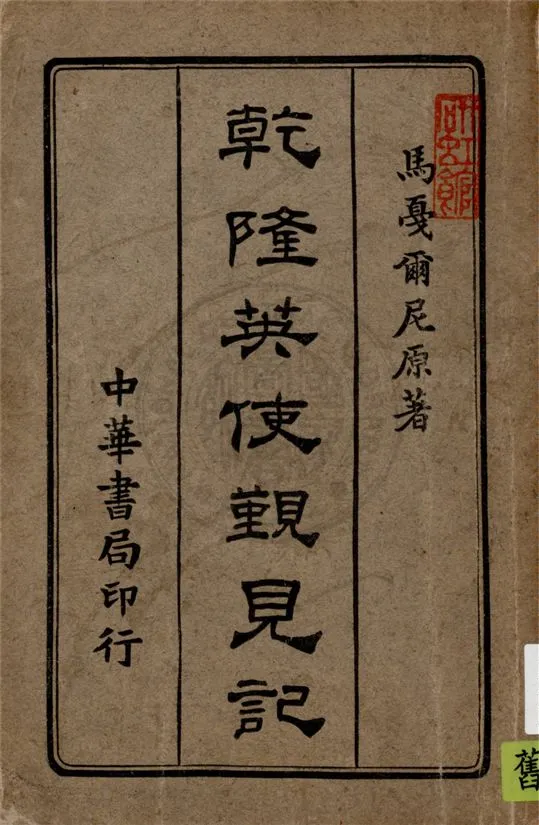 馬戛爾尼原著
乾隆英使覲見記
中華書局印行
舊